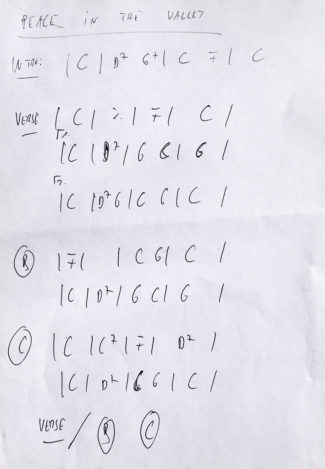 PEACE IN THE VALLEY
INTRO: | C | D7 G7 | C F | C
VERSE | C | ٪ | F | C |
1. | C | D7 | G C | G |
2. | C | D7 G | C G | C |
B | F | | C G | C |
| C | D7 | G C | G |
C | C | C7 | F | D7 |
| C | D7 | G | C |
VERSE / B C